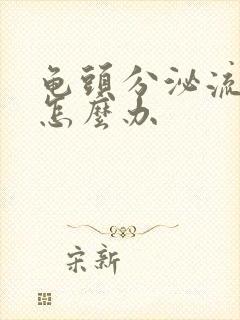 龟頭分泌流
怎麼办
宋新